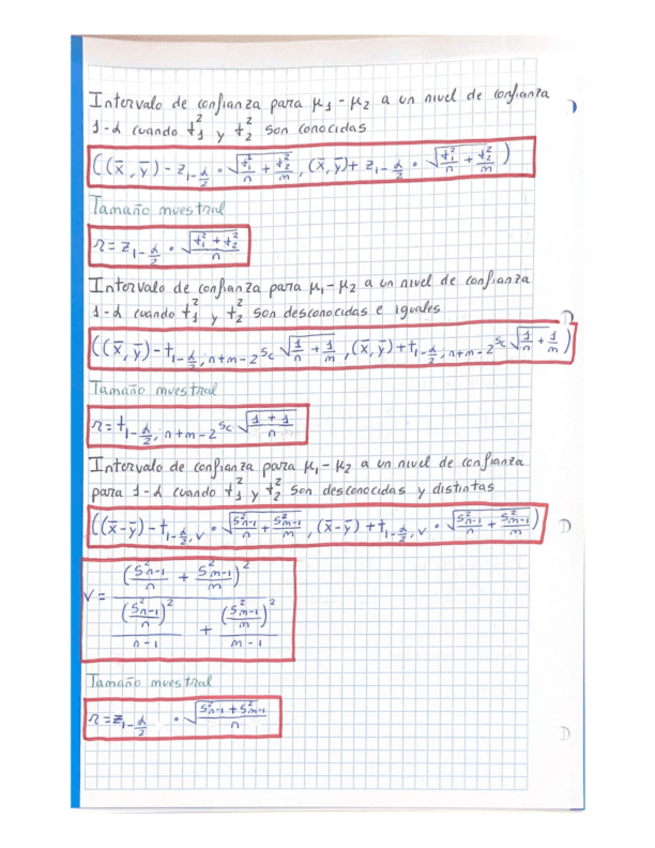 Intervalo de confianza para μ1 - μ2 a un nivel de confianza
1-α cuando σ²1 y σ²2 son conocidas
((x̄, ȳ) - z1-α/2 · √(σ²1/n + σ²2/m), (x̄, ȳ) + z1-α/2 · √(σ²1/n + σ²2/m))
Tamaño muestral
r = z1-α/2 · √((σ²1 + σ²2)/n)
Intervalo de confianza para μ1 - μ2 a un nivel de confianza
1-α cuando σ²1 y σ²2 son desconocidas e iguales
((x̄, ȳ) - t1-α/2, n+m-2 Sc √(1/n + 1/m), (x̄, ȳ) + t1-α/2, n+m-2 Sc √(1/n + 1/m))
Tamaño muestral
r = t1-α/2, n+m-2 Sc √((1+1)/n)
Intervalo de confianza para μ1 - μ2 a un nivel de confianza
para 1-α cuando σ²1 y σ²2 son desconocidas y distintas
((x̄-ȳ) - t1-α/2, v · √(S²n-1/n + S²m-1/m), (x̄-ȳ) + t1-α/2, v · √(S²n-1/n + S²m-1/m))
v = (S²n-1/n + S²m-1/m)² / ((S²n-1/n)²/(n-1) + (S²m-1/m)²/(m-1))
Tamaño muestral
r = z1-α/2 · √((S²n-1 + S²m-1)/n)